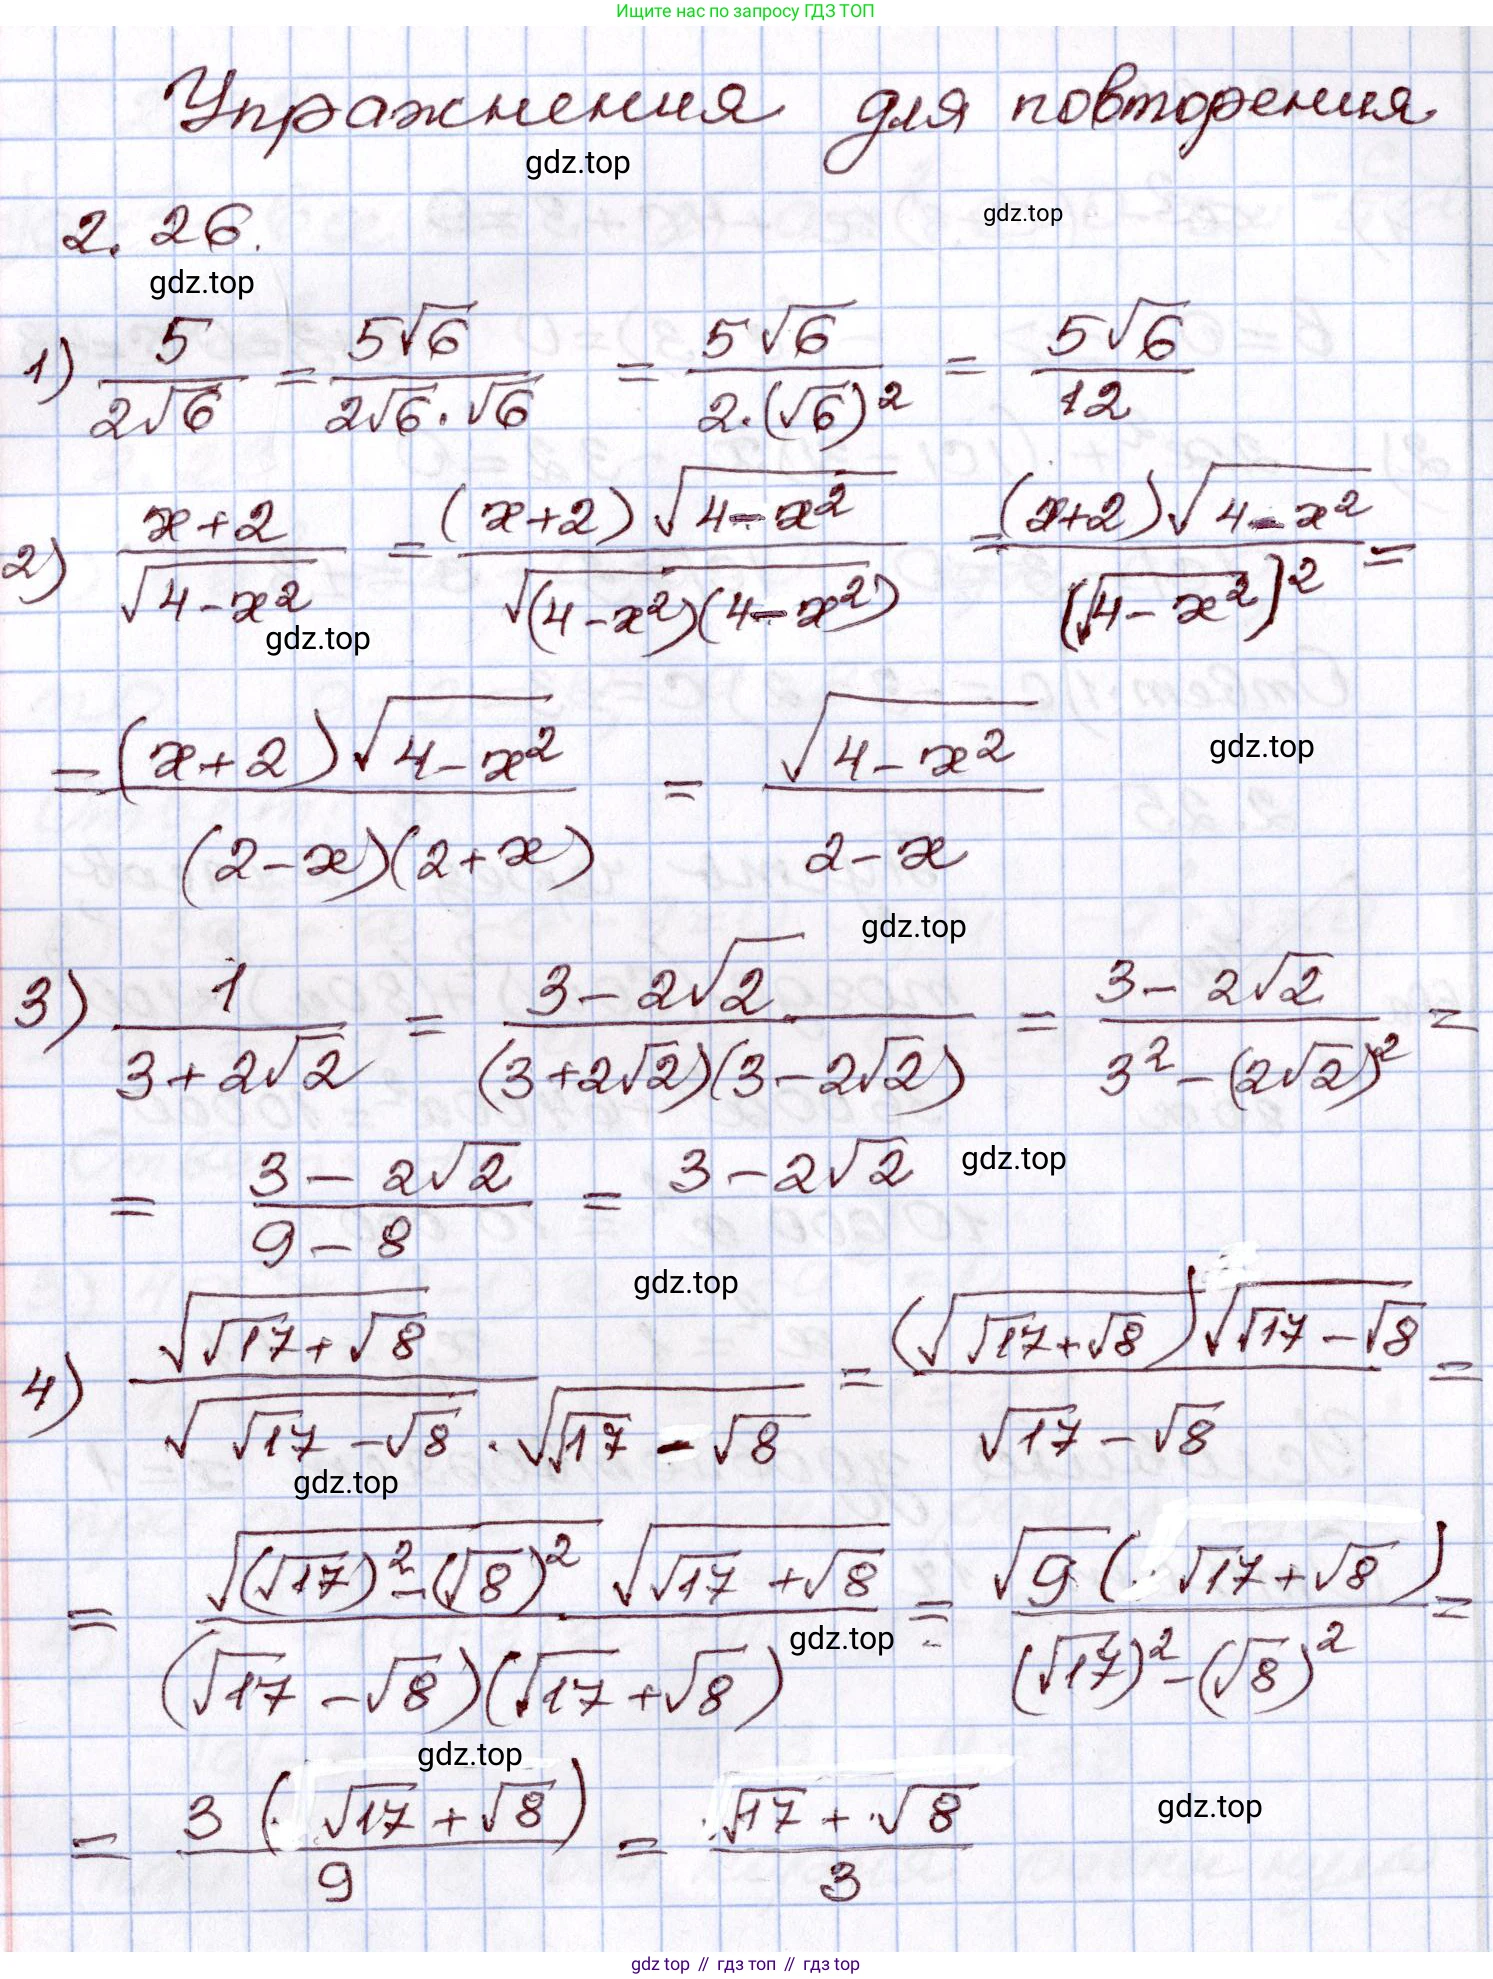 Ищите нас по запросу ГДЗ ТОП
Упражнения для повторения
gdz.top
2.26.
gdz.top
gdz.top
1) 5/(2√6) = 5√6/(2√6·√6) = 5√6/(2·(√6)²) = 5√6/12
2) (x+2)/√(4-x²) = (x+2)√(4-x²)/√((4-x²)(4-x²)) = (x+2)√(4-x²)/(√(4-x²))² =
gdz.top
= (x+2)√(4-x²)/((2-x)(2+x)) = √(4-x²)/(2-x)
gdz.top
gdz.top
3) 1/(3+2√2) = (3-2√2)/((3+2√2)(3-2√2)) = (3-2√2)/(3²-(2√2)²) =
= (3-2√2)/(9-8) = 3-2√2
gdz.top
gdz.top
4) √(√17+√8)/(√(√17-√8)·√(√17-√8)) = (√(√17+√8))√(√17-√8)/(√17-√8) =
gdz.top
= √((√17)²-(√8)²) √(√17+√8)/((√17-√8)(√17+√8)) = √9(√17+√8)/((√17)²-(√8)²) =
gdz.top
gdz.top
= 3(√17+√8)/9 = (√17+√8)/3
gdz.top
gdz.top // гдз топ // гдз top